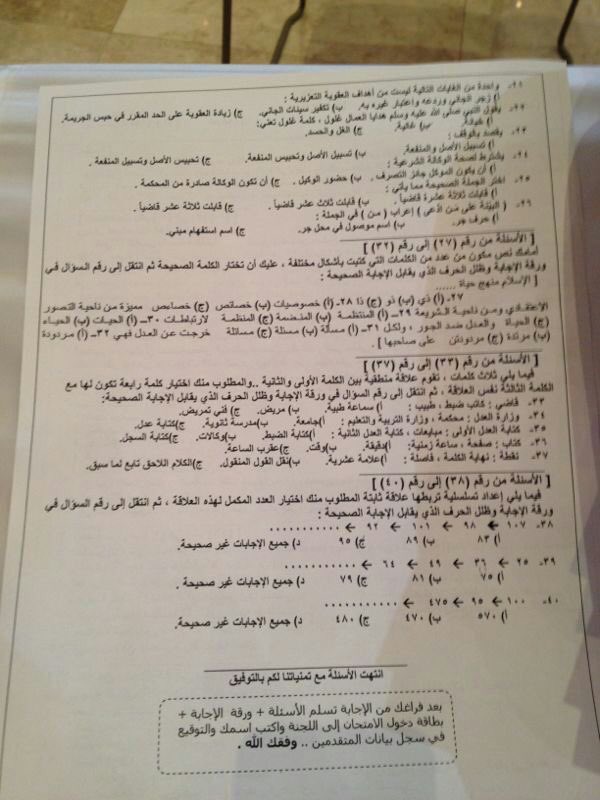 ٢١- واحدة من الغايات التالية ليست من أهداف العقوبة التعزيرية :
أ) زجر الجاني وردعه واعتبار غيره به. ب) تكفير سيئات الجاني. ج) زيادة العقوبة على الحد المقرر في حبس الجريمة.
٢٢- يقول النبي صلى الله عليه وسلم هدايا العمال غلول ، كلمة غلول تعني:
أ) خيانة. ب) غالية. ج) الغل والحسد.
٢٣- يقصد بالوقف :
أ) تسبيل الأصل والمنفعة. ب) تسبيل الأصل وتحبيس المنفعة. ج) تحبيس الأصل وتسبيل المنفعة .
٢٤- يشترط لصحة الوكالة الشرعية :
أ) أن يكون الموكل جائز التصرف . ب) حضور الوكيل . ج) أن تكون الوكالة صادرة من المحكمة .
٢٥- اختر الجملة الصحيحة مما يأتي :
أ) قابلت ثلاثة عشرة قاضياً . ب) قابلت ثلاث عشر قاضياً . ج) قابلت ثلاثة عشر قاضياً .
٢٦- ( البينة على من ادعى ) إعراب ( من ) في الجملة :
أ) حرف جر. ب) اسم موصول في محل جر. ج) اسم استفهام مبني.
[ الأسئلة من رقم (٢٧) إلى رقم (٣٢) ]
أمامك نص مكون من عدد من الكلمات التي كتبت بأشكال مختلفة ، عليك أن تختار الكلمة الصحيحة ثم انتقل إلى رقم السؤال في
ورقة الإجابة وظلل الحرف الذي يقابل الإجابة الصحيحة :
[ الإسلام منهج حياة ......
٢٧- أ) ذي (ب) ذو (ج) ذا ٢٨- أ) خصوصيات (ب) خصائص (ج) خصاءص مميزة من ناحية التصور
الإعتقادي ومن ناحية الشريعة ٢٩- أ) المنتظمة (ب) المنضمة (ج) المنظمة لارتباطات ٣٠- أ) الحيات (ب) الحياء
(ج) الحياة والعدل ضد الجور ، ولكل ٣١- أ) مسألة (ب) مسئلة (ج) مسائلة خرجت عن العدل فهي ٣٢- أ) مردودة
(ب) مرتدة (ج) مردودتن على صاحبها ] .
[ الأسئلة من رقم (٣٣) إلى رقم (٣٧) ]
فيما يلي ثلاث كلمات ، تقوم علاقة منطقية بين الكلمة الأولى والثانية ..والمطلوب منك اختيار كلمة رابعة تكون لها مع
الكلمة الثالثة نفس العلاقة ، ثم انتقل إلى رقم السؤال في ورقة الإجابة وظلل الحرف الذي يقابل الإجابة الصحيحة:
٣٣- قاضي : كاتب ضبط ، طبيب : أ) سماعة طبية. ب) مريض. ج) فني تمريض.
٣٤- وزارة العدل : محكمة ، وزارة التربية والتعليم : أ)جامعة. ب)مدرسة ثانوية. ج)كتابة عدل.
٣٥- كتابة العدل الأولى : مبايعات ، كتابة العدل الثانية : أ)كتابة الضبط. ب)وكالات. ج)كتابة السجل.
٣٦- كتاب : صفحة ، ساعة زمنية: أ)دقيقة. ب)وقت. ج)عقرب الساعة.
٣٧- نقطة : نهاية الكلمة ، فاصلة : أ)علامة عشرية. ب)نقل القول المنقول. ج)الكلام اللاحق تابع لما سبق.
[ الأسئلة من رقم (٣٨) إلى رقم (٤٠) ]
فيما يلي إعداد تسلسلية تربطها علاقة ثابتة المطلوب منك اختيار العدد المكمل لهذه العلاقة ، ثم انتقل إلى رقم السؤال في
ورقة الإجابة وظلل الحرف الذي يقابل الإجابة الصحيحة :
٣٨- ١٠٧ ← ٩٨ ← ١٠١ ← ٩٢ ← ............
أ) ٨٣ ب) ٨٩ ج) ٩٥ د) جميع الإجابات غير صحيحة.
٣٩- ٢٥ ← ٣٦ ← ٤٩ ← ٦٤ ← ............
أ) ٧٥ ب) ٨١ ج) ٧٩ د) جميع الإجابات غير صحيحة .
٤٠- ١٠٠ ← ٩٥ ← ٤٧٥ ← ............
أ) ٥٧٠ ب) ٤٧٠ ج) ٤٨٠ د) جميع الإجابات غير صحيحة.
انتهت الأسئلة مع تمنياتنا لكم بالتوفيق
بعد فراغك من الإجابة تسلم الأسئلة + ورقة الإجابة +
بطاقة دخول الامتحان إلى اللجنة واكتب اسمك والتوقيع
في سجل بيانات المتقدمين .. وفقك الله .